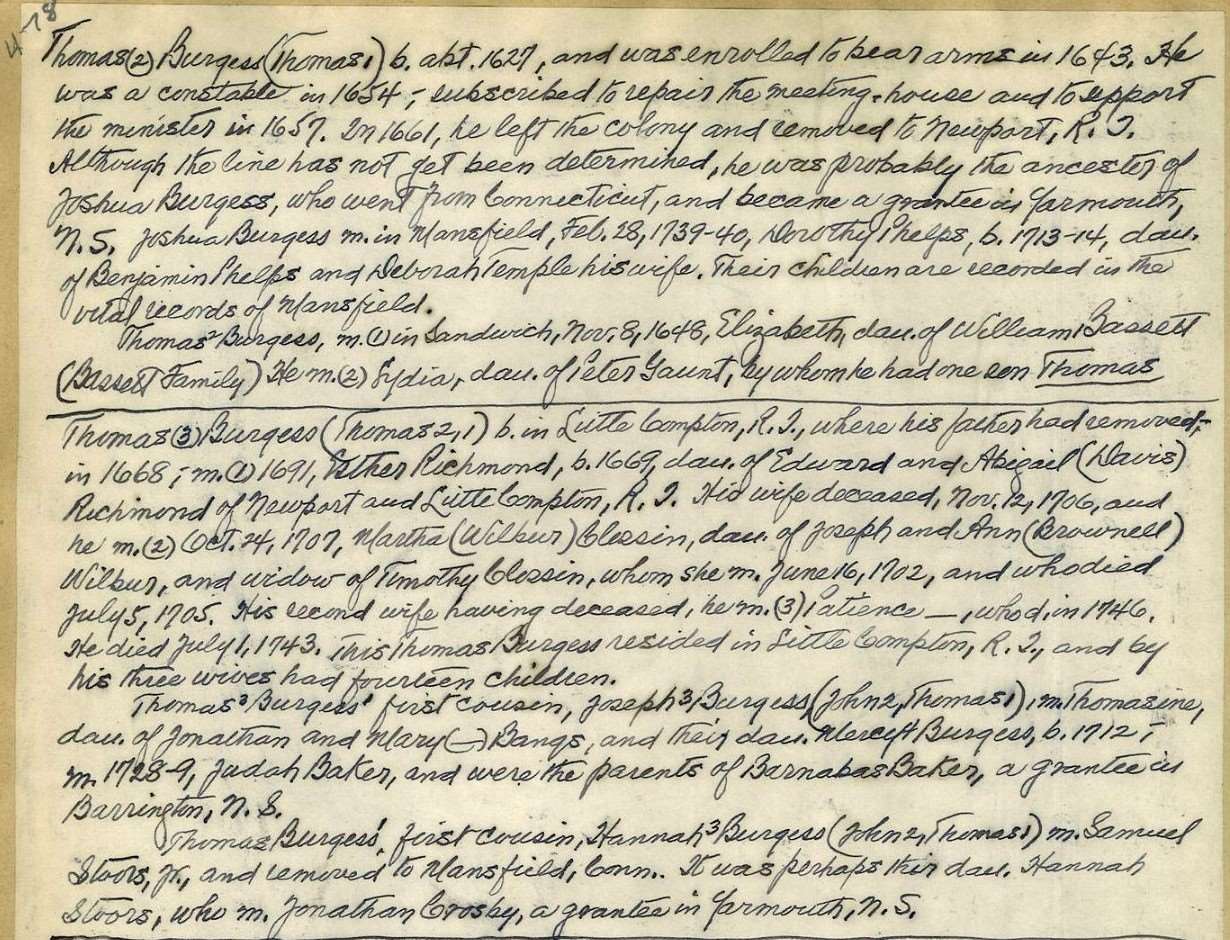 4-78
Thomas(2) Burgess (Thomas1) b. abt. 1627, and was enrolled to bear arms in 1643. He
was a constable in 1654; subscribed to repair the meeting-house and to support
the minister in 1657. In 1661, he left the colony and removed to Newport, R. I.
Although the line has not yet been determined, he was probably the ancestor of
Joshua Burgess, who went from Connecticut, and became a grantee in Yarmouth,
N.S. Joshua Burgess m. in Mansfield, Feb. 28, 1739-40, Dorothy Phelps, b. 1713-14, dau.
of Benjamin Phelps and Deborah Temple his wife. Their children are recorded in the
vital records of Mansfield.
Thomas² Burgess, m. (1) in Sandwich, Nov. 8, 1648, Elizabeth, dau. of William Bassett
(Bassett Family) He m. (2) Lydia, dau. of Peter Gaunt, by whom he had one son Thomas
Thomas (3) Burgess (Thomas 2,1) b. in Little Compton, R. I., where his father had removed,
in 1668; m. (1) 1691, Esther Richmond, b. 1669, dau. of Edward and Abigail (Davis)
Richmond of Newport and Little Compton, R. I. His wife deceased, Nov. 12, 1706, and
he m. (2) Oct. 24, 1707, Martha (Wilbur) Clossin, dau. of Joseph and Ann (Brownell)
Wilbur, and widow of Timothy Clossin, whom she m. June 16, 1702, and who died
July 5, 1705. His second wife having deceased, he m. (3) Patience —, who d. in 1746.
He died July 1, 1743. This Thomas Burgess resided in Little Compton, R. I., and by
his three wives had fourteen children.
Thomas³ Burgess' first cousin, Joseph³ Burgess, (John2, Thomas1), m. Thomasine,
dau. of Jonathan and Mary (—) Bangs, and their dau. Mercy4 Burgess, b. 1712;
m. 1728-9, Judah Baker, and were the parents of Barnabas Baker, a grantee in
Barrington, N.S.
Thomas Burgess', first cousin, Hannah³ Burgess (John2, Thomas1) m. Samuel
Stoors, Jr., and removed to Mansfield, Conn.. It was perhaps their dau. Hannah
Stoors, who m. Jonathan Crosby, a grantee in Yarmouth, N.S.